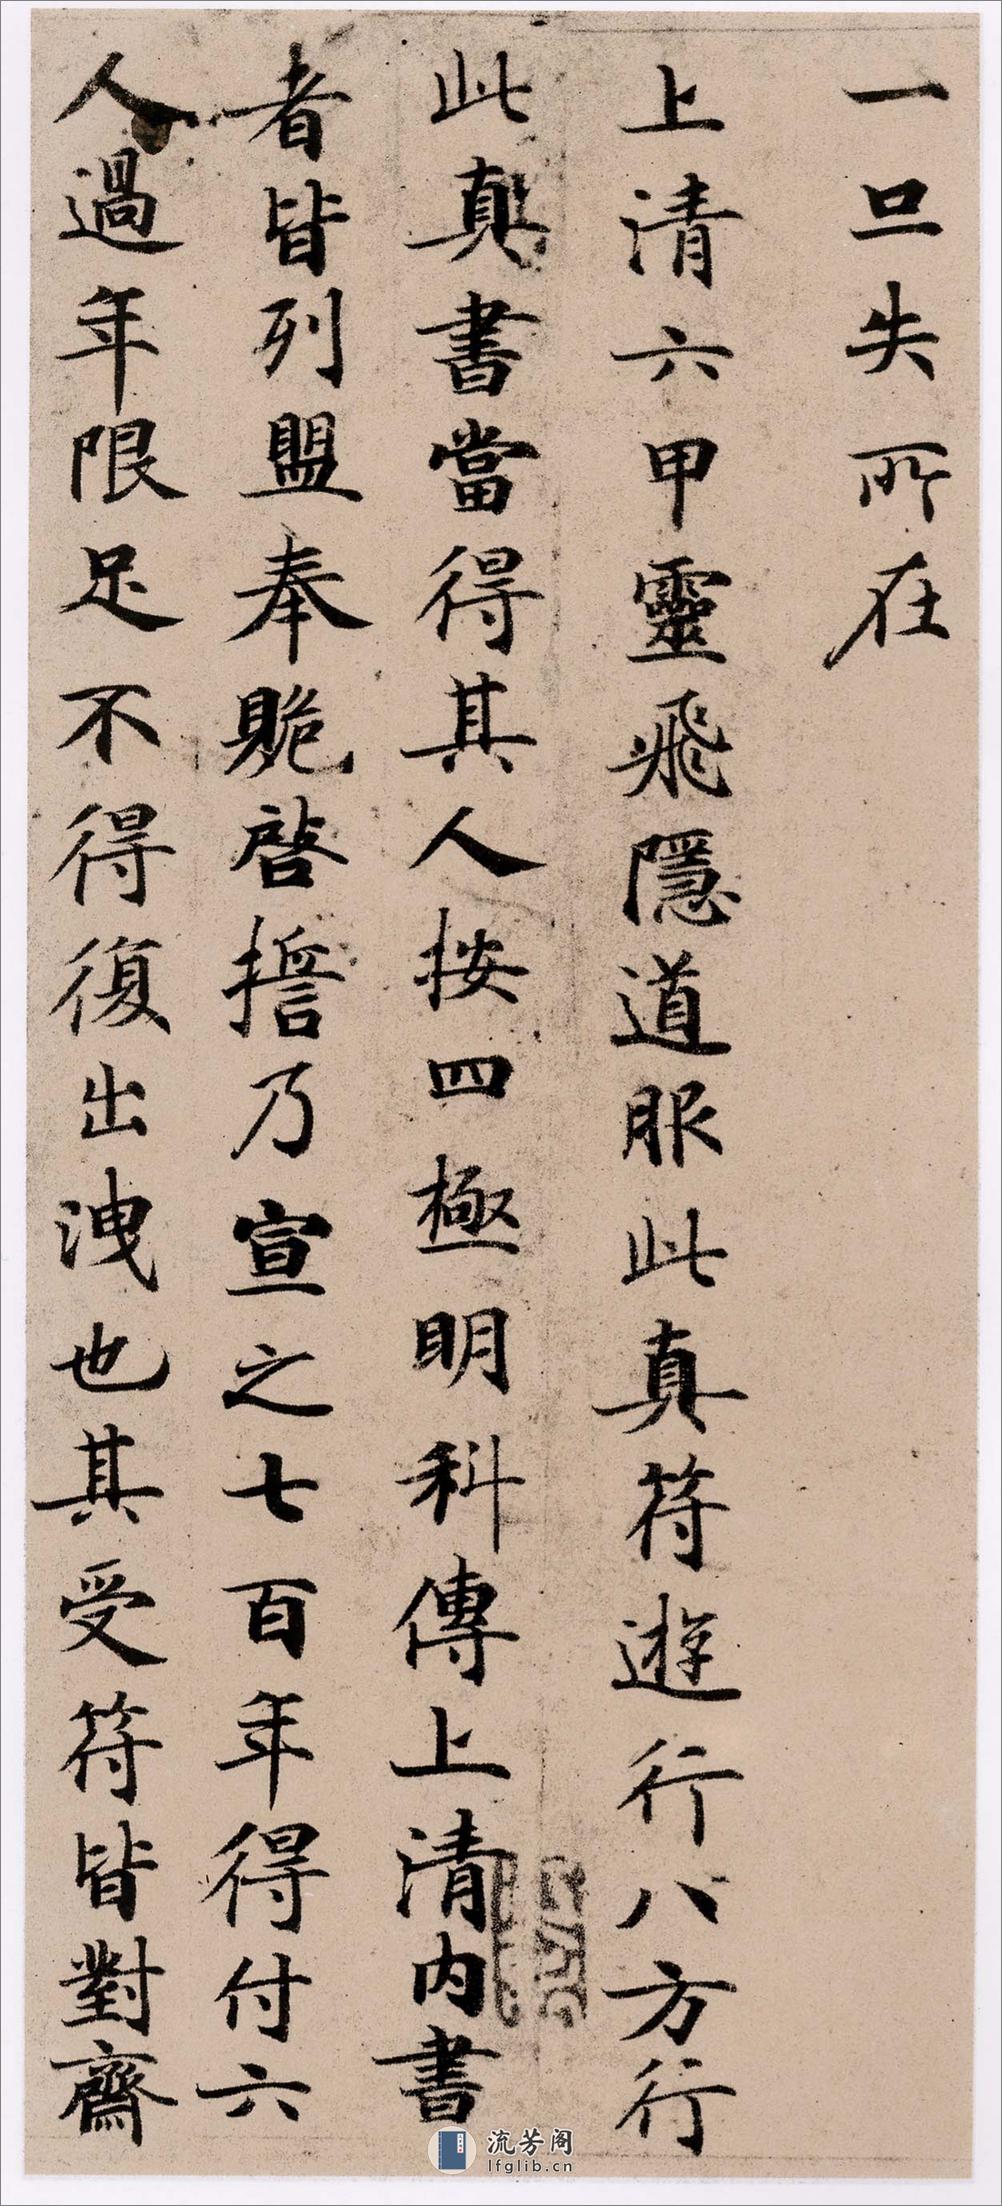 一旦失所在
上清六甲靈飛隱道服此真符遊行八方行
此真書當得其人按四極明科傳上清内書
者皆列盟奉貹啓擔乃宣之七百年得付六
人過年限足不得復出洩也其受符皆對齋
流芳阁
lfglib.cn